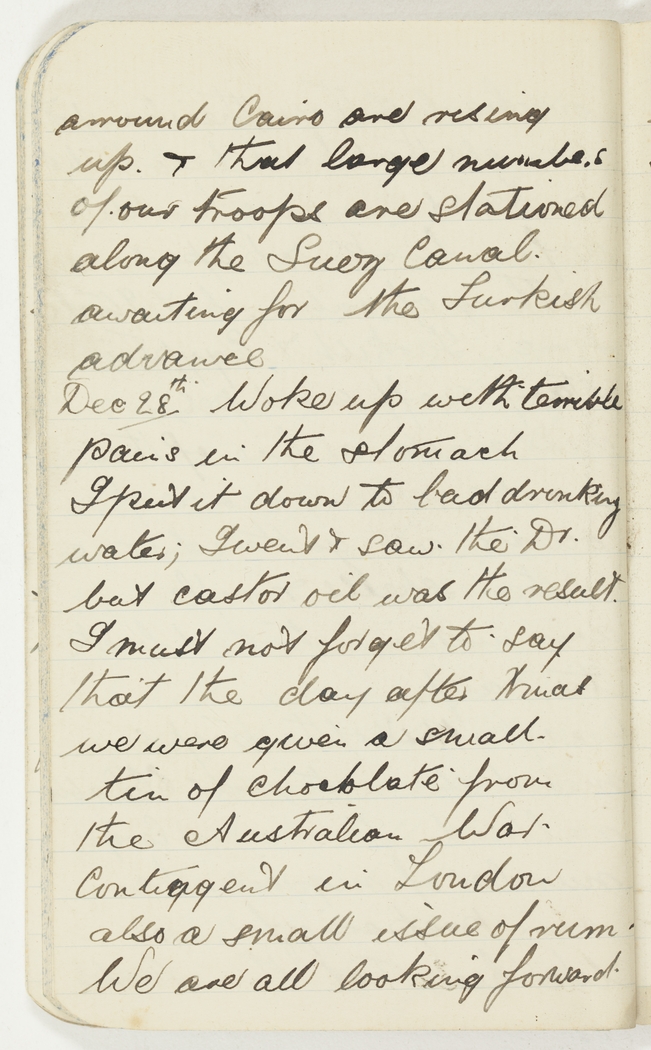 arround Cairo are rising
up. & that large numbers
of our troops are stationed
along the Suez Canal.
awaiting for the Turkish
advance
Dec 28th Woke up with terrible
pains in the stomach
I put it down to bad drinking
water; I went & saw. the Dr.
but castor oil was the result.
I must not forget to say
that the day after Xmas
we were given a small
tin of chocolate from
the Australian War
Contingent in London
also a small issue of rum.
We are all looking forward